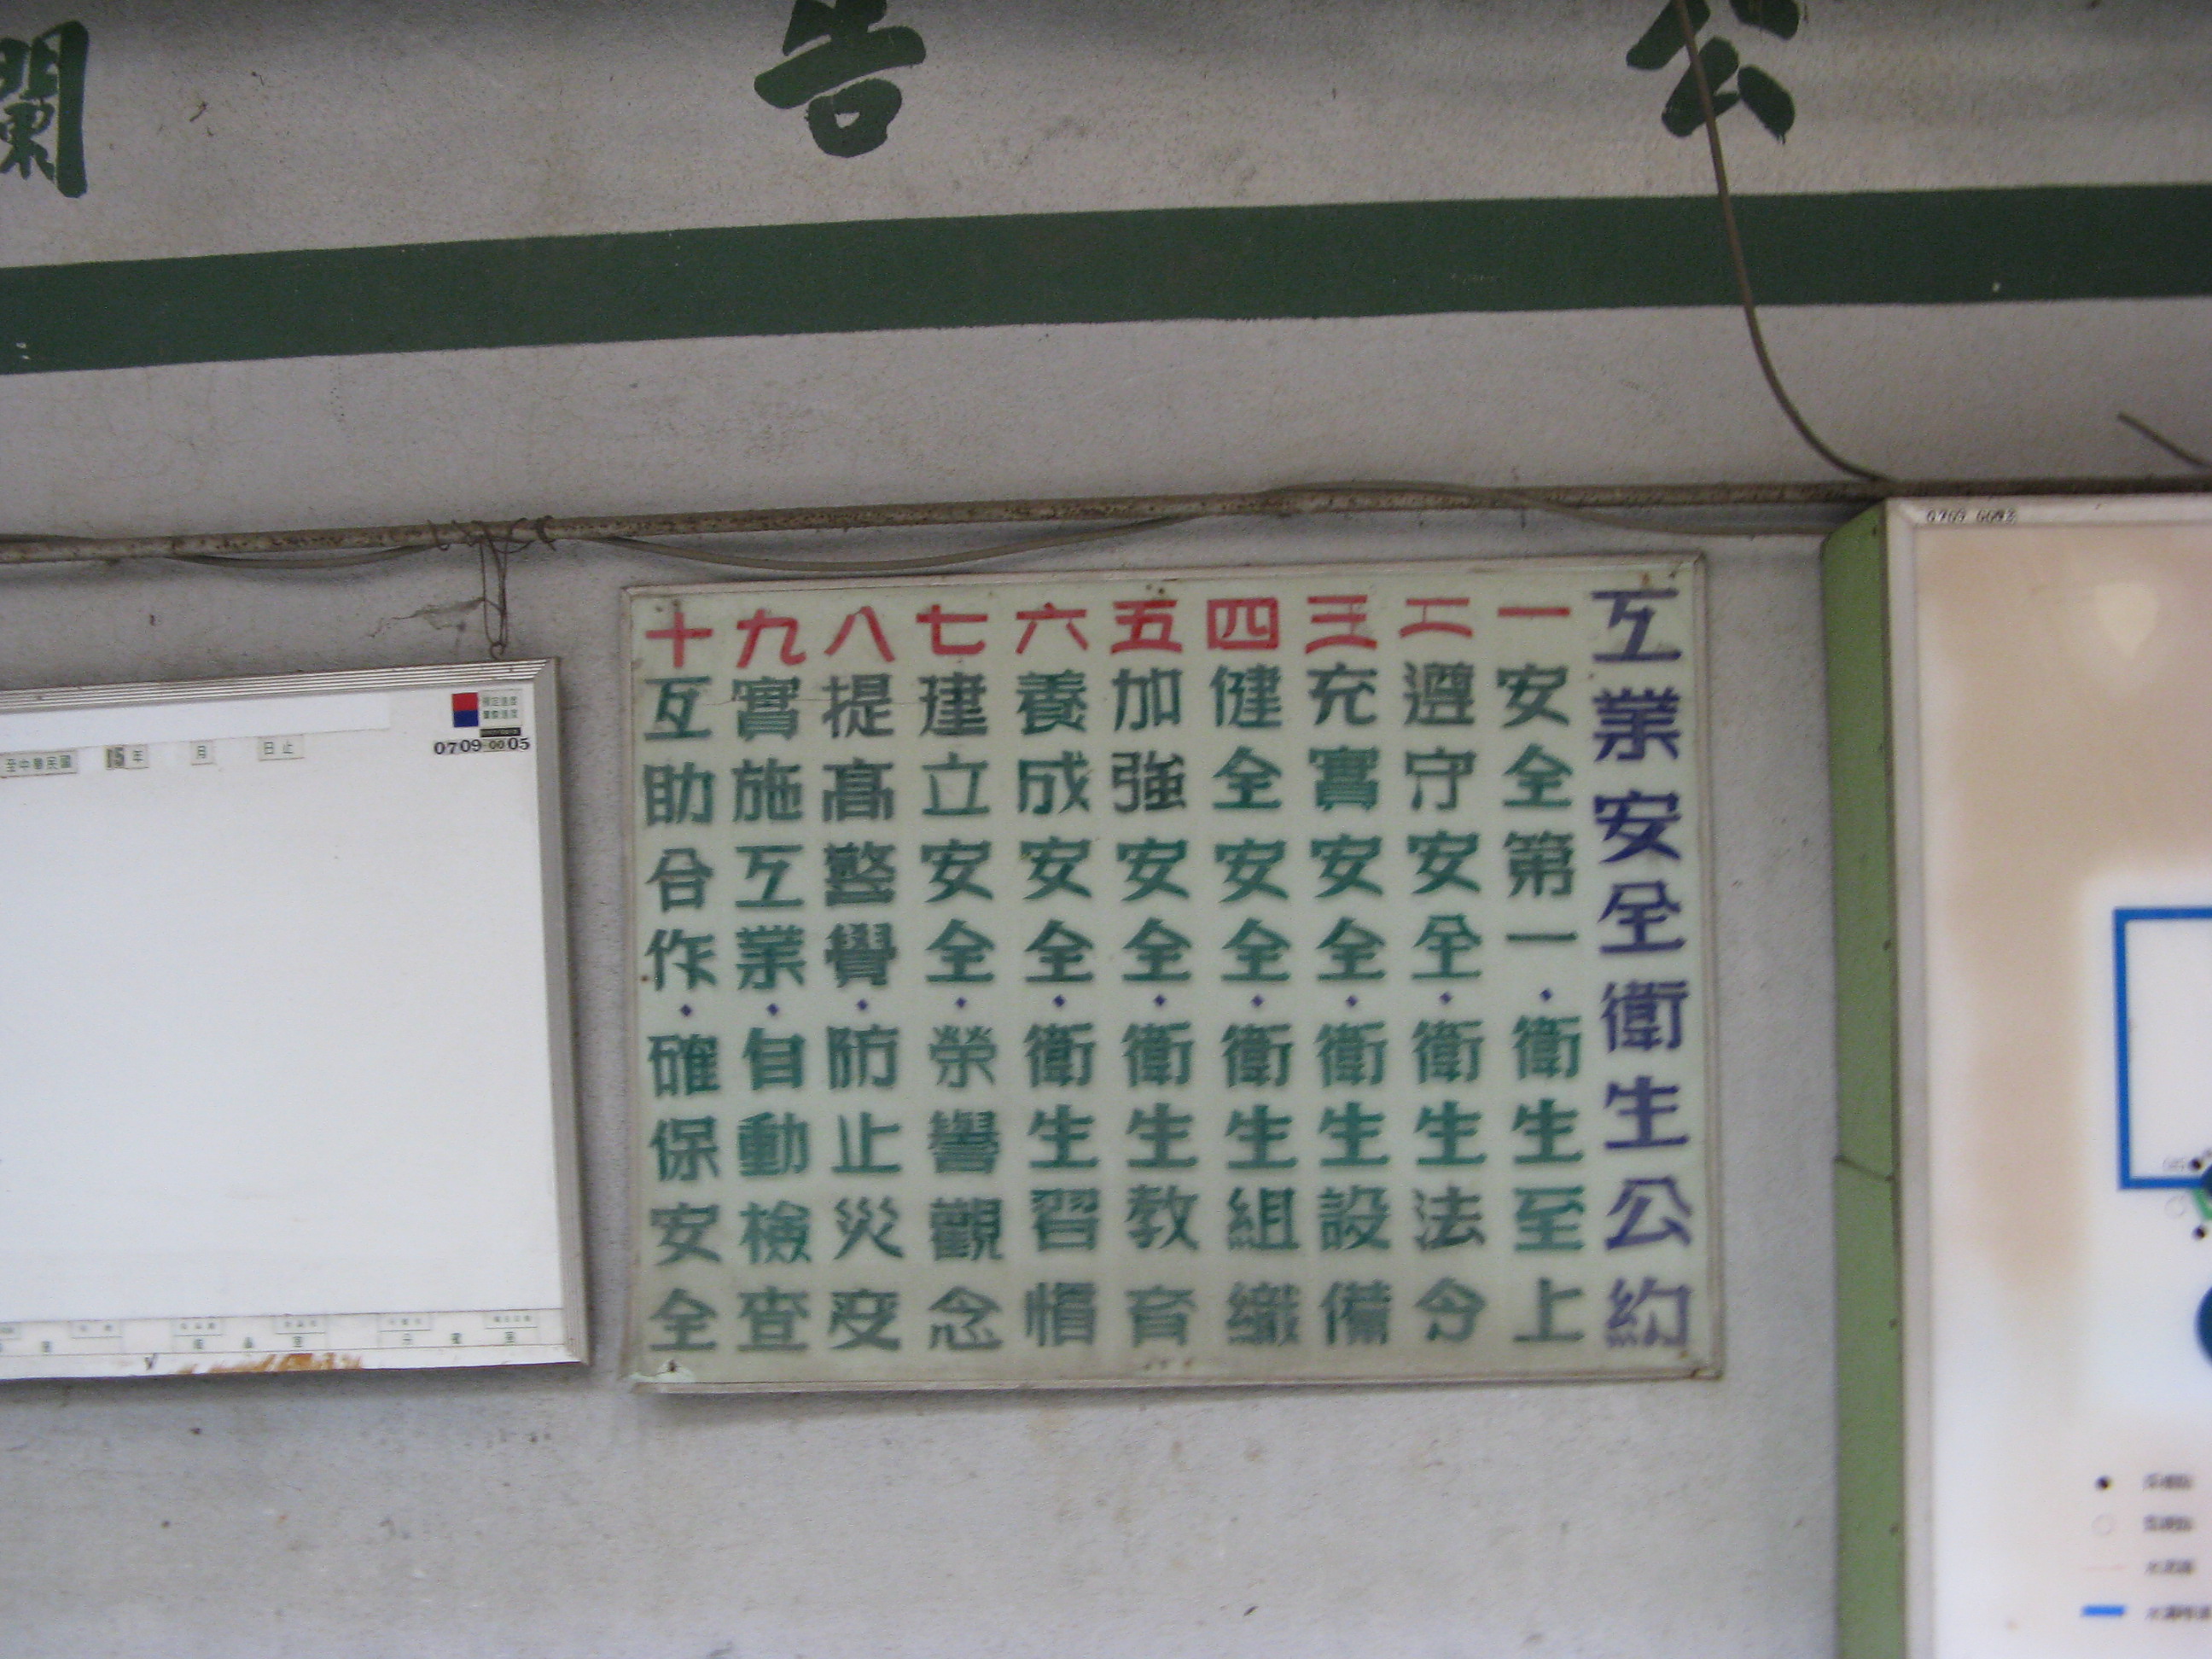 公告欄
工業安全衛生公約
一安全第一·衛生至上
二遵守安全·衛生法令
三充實安全·衛生設備
四健全安全·衛生組織
五加強安全·衛生教育
六養成安全·衛生習慣
七建立安全·榮譽觀念
八提高警覺·防止災變
九實施工業·自動檢查
十互助合作·確保安全
至中華民國 年 月 日止
0709 00 05